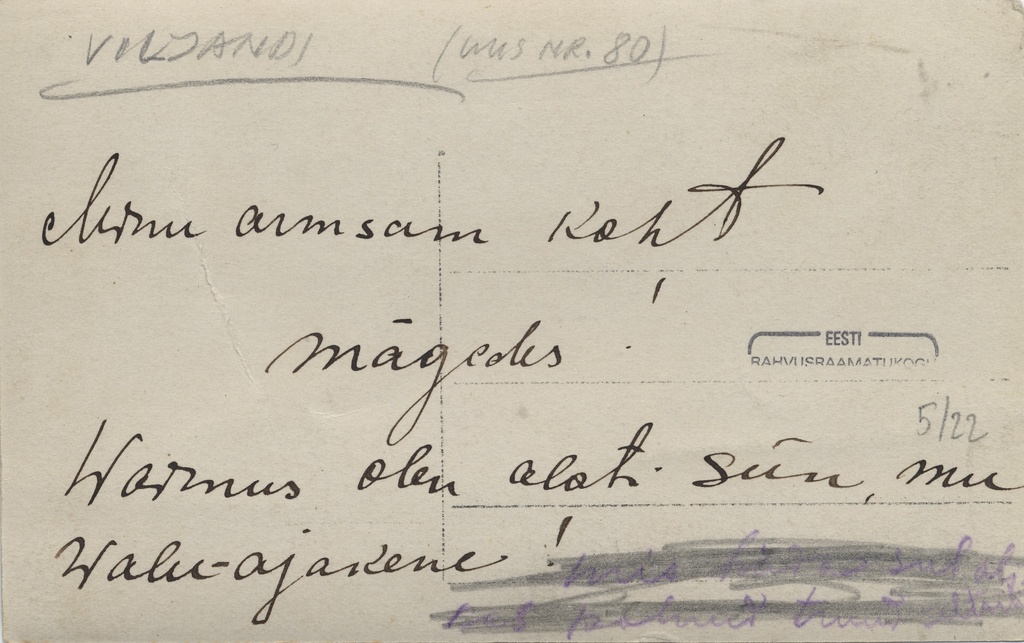 VILJANDI (UUS NR. 80)
Minu armsam koht
mägedes
EESTI
RAHVUSRAAMATUKOGU
5/22
Waimus olen alati siin, mu
Walu-ajakene!